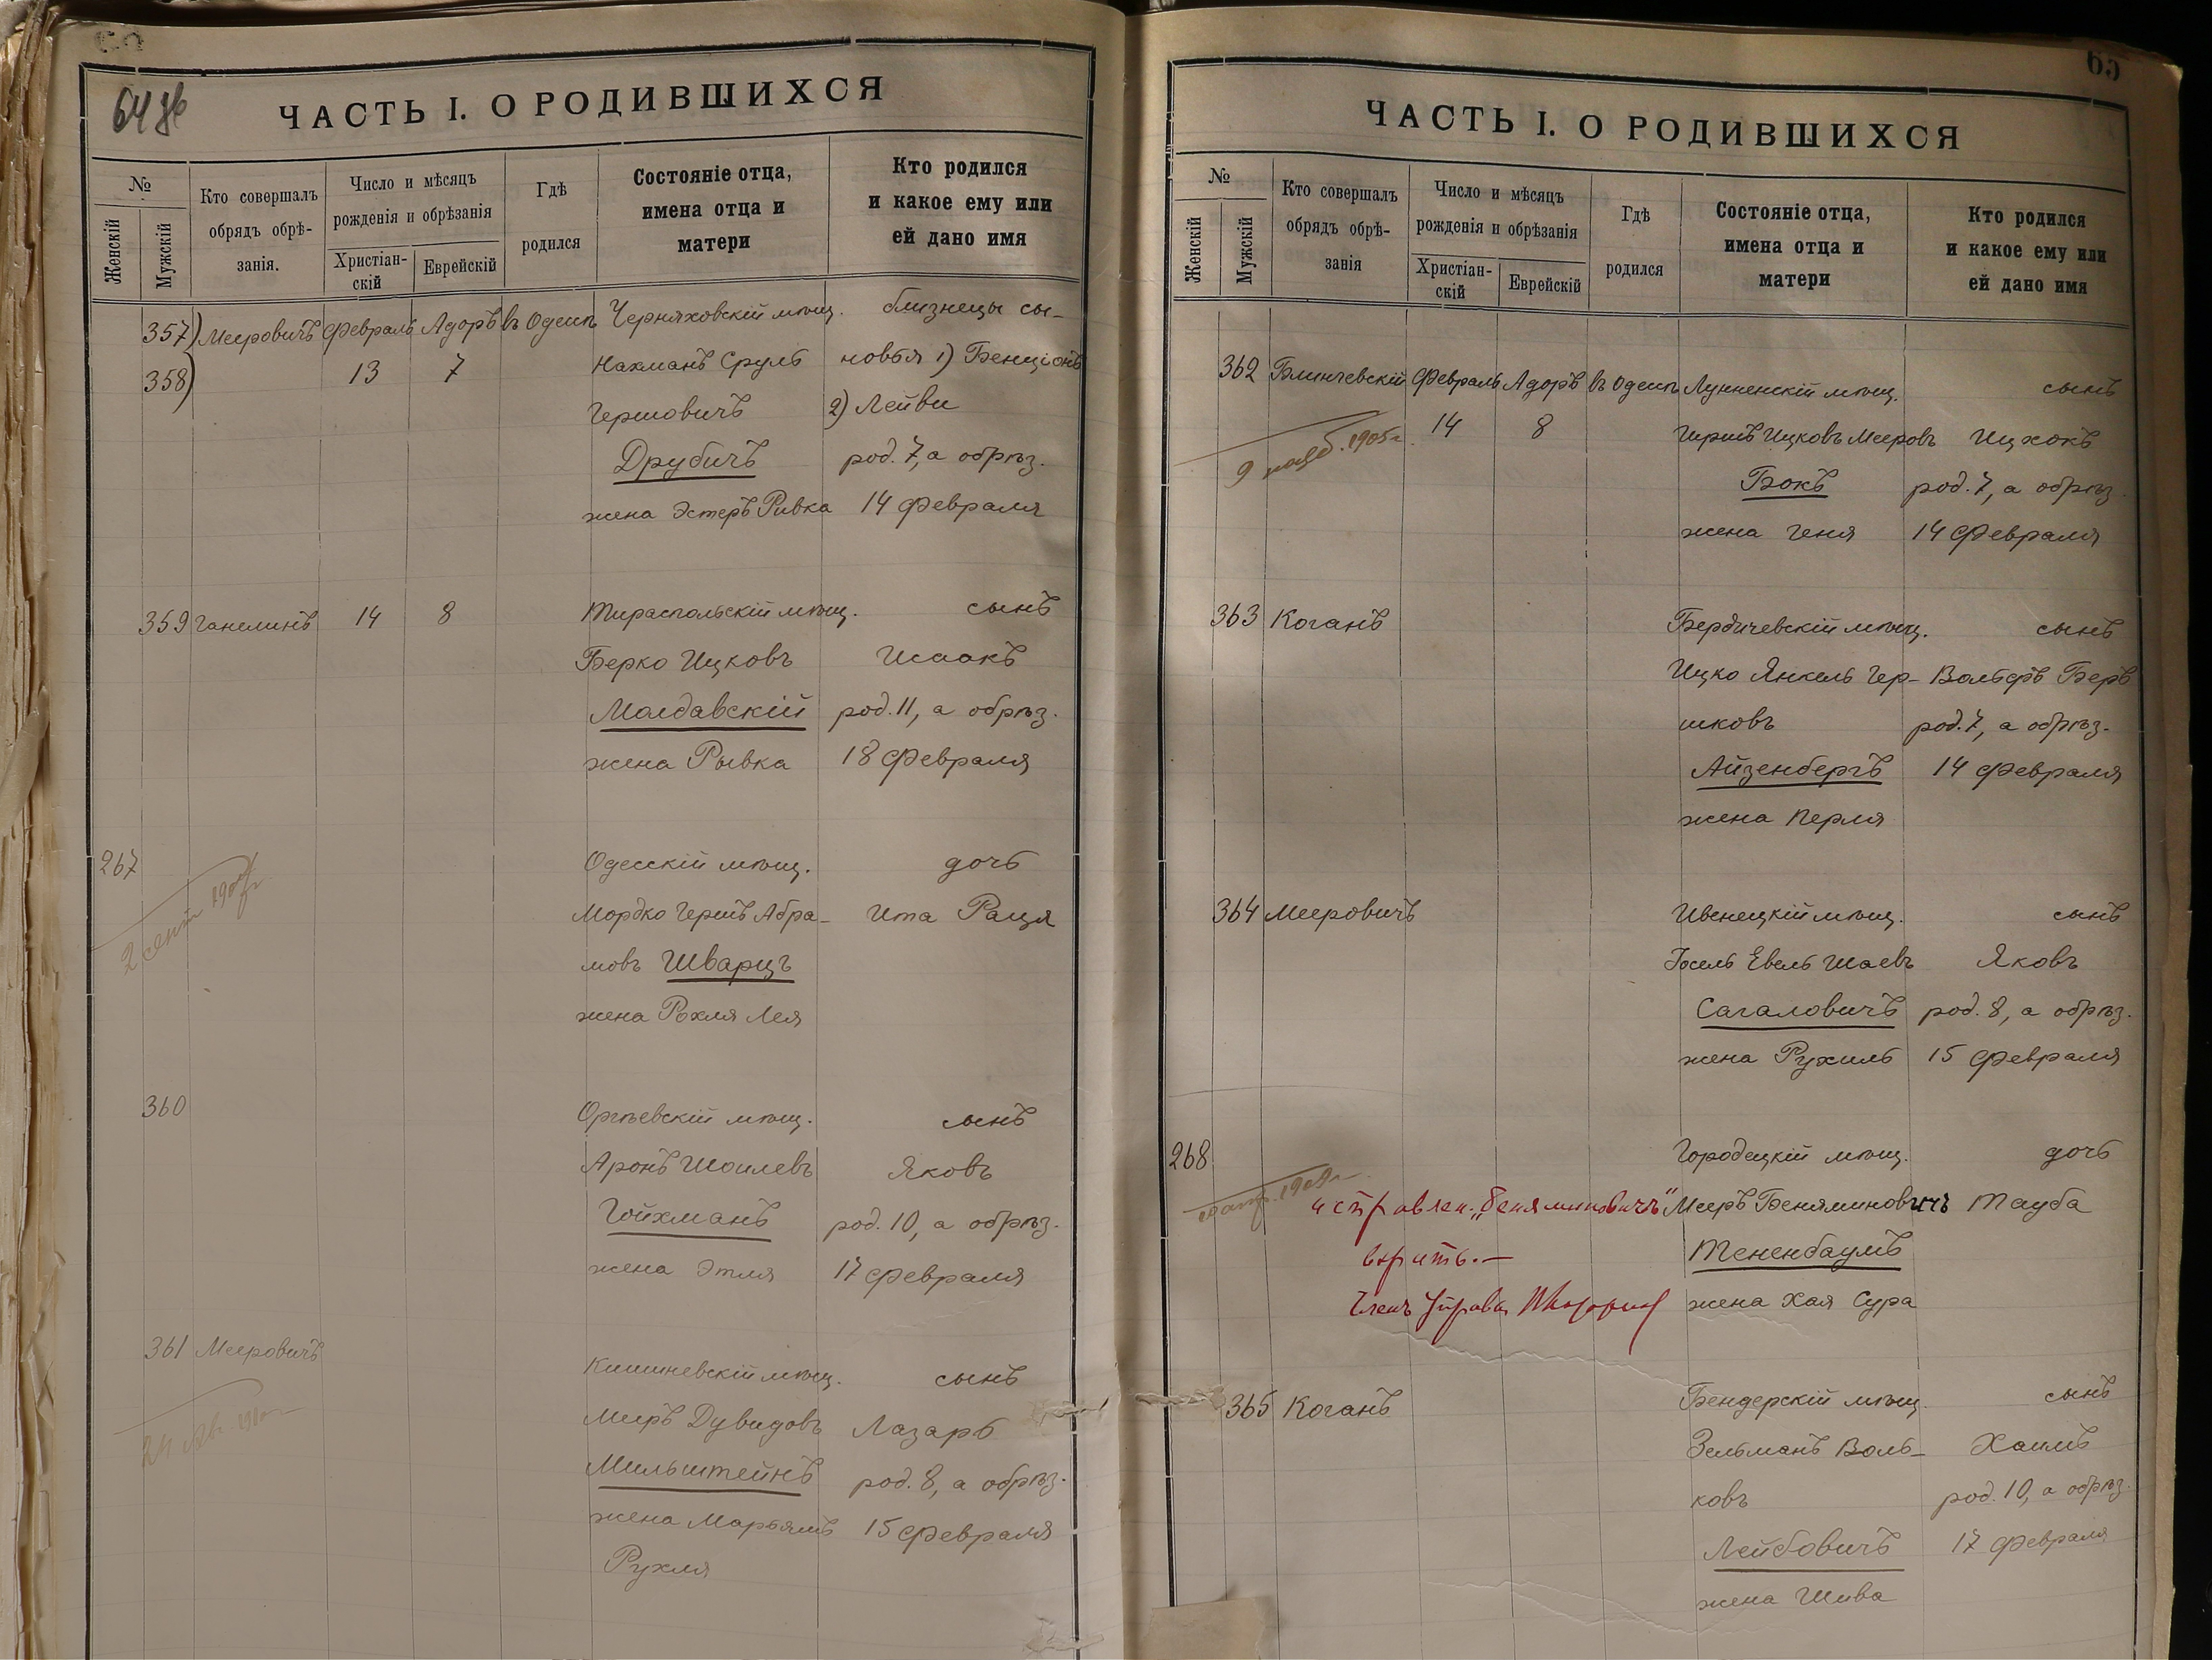 64 об
ЧАСТЬ I. О РОДИВШИХСЯ
№
Женскій
Мужскій
Кто совершалъ
обрядъ обрѣ-
занія.
Число и мѣсяцъ
рожденія и обрѣзанія
Христіан-
скій
Еврейскій
Гдѣ
родился
Состояніе отца,
имена отца и
матери
Кто родился
и какое ему или
ей дано имя
357) Мееровичъ Февраль Адоръ въ Одессѣ Черняховскій мѣщ. близнецы сы-
358) 13 7 Нахманъ Сруль новья 1) Бенціонъ
Гершовичъ 2) Лейви
Друбичъ род. 7, а обрѣз.
жена Эстеръ Ривка 14 Февраля
359 Ганелинъ 14 8 Тираспольскій мѣщ. сынъ
Берко Ицковъ Исаакъ
Молдавскій род. 11, а обрѣз.
жена Рывка 18 Февраля
267 Одесскій мѣщ. дочь
Мордко Гершъ Абра- Ита Раця
2 сент
мовъ Шварцъ
жена Рохля Лея
360 Оргѣевскій мѣщ. сынъ
Аронъ Шоилевъ Яковъ
Гойхманъ род. 10, а обрѣз.
жена Этля 17 Февраля
361 Мееровичъ Кишиневскій мѣщ. сынъ
Меиръ Дувидовъ Лазарь
Мильштейнъ род. 8, а обрѣз.
жена Марьямъ 15 Февраля
Рухля
65
ЧАСТЬ I. О РОДИВШИХСЯ
№
Женскій
Мужскій
Кто совершалъ
обрядъ обрѣ-
занія
Число и мѣсяцъ
рожденія и обрѣзанія
Христіан-
скій
Еврейскій
Гдѣ
родился
Состояніе отца,
имена отца и
матери
Кто родился
и какое ему или
ей дано имя
362 Блинчевскій Февраль Адоръ въ Одессѣ Лунненскій мѣщ. сынъ
14 8 Гершъ Ицковъ Мееровъ Ицхокъ
9 1905 г.
Бокъ род. 7, а обрѣз.
жена Геня 14 Февраля
363 Коганъ Бердичевскій мѣщ. сынъ
Ицко Янкель Гер- Вольфъ Беръ
шковъ род. 7, а обрѣз.
Айзенбергъ 14 Февраля
жена Перля
364 Мееровичъ Ивенецкій мѣщ. сынъ
Іосель Евель Шаевъ Яковъ
Сагаловичъ род. 8, а обрѣз.
жена Рухиль 15 Февраля
268 Городецкій мѣщ. дочь
исправлен. „Беняминовичъ" Мееръ Беняминовичъ Тауба
вѣрить.— Тененбаумъ
Членъ Управы жена Хая Сура
365 Коганъ Бендерскій мѣщ. сынъ
Зельманъ Воль- Хаимъ
ковъ род. 10, а обрѣз.
Лейбовичъ 17 Февраля
жена Шива